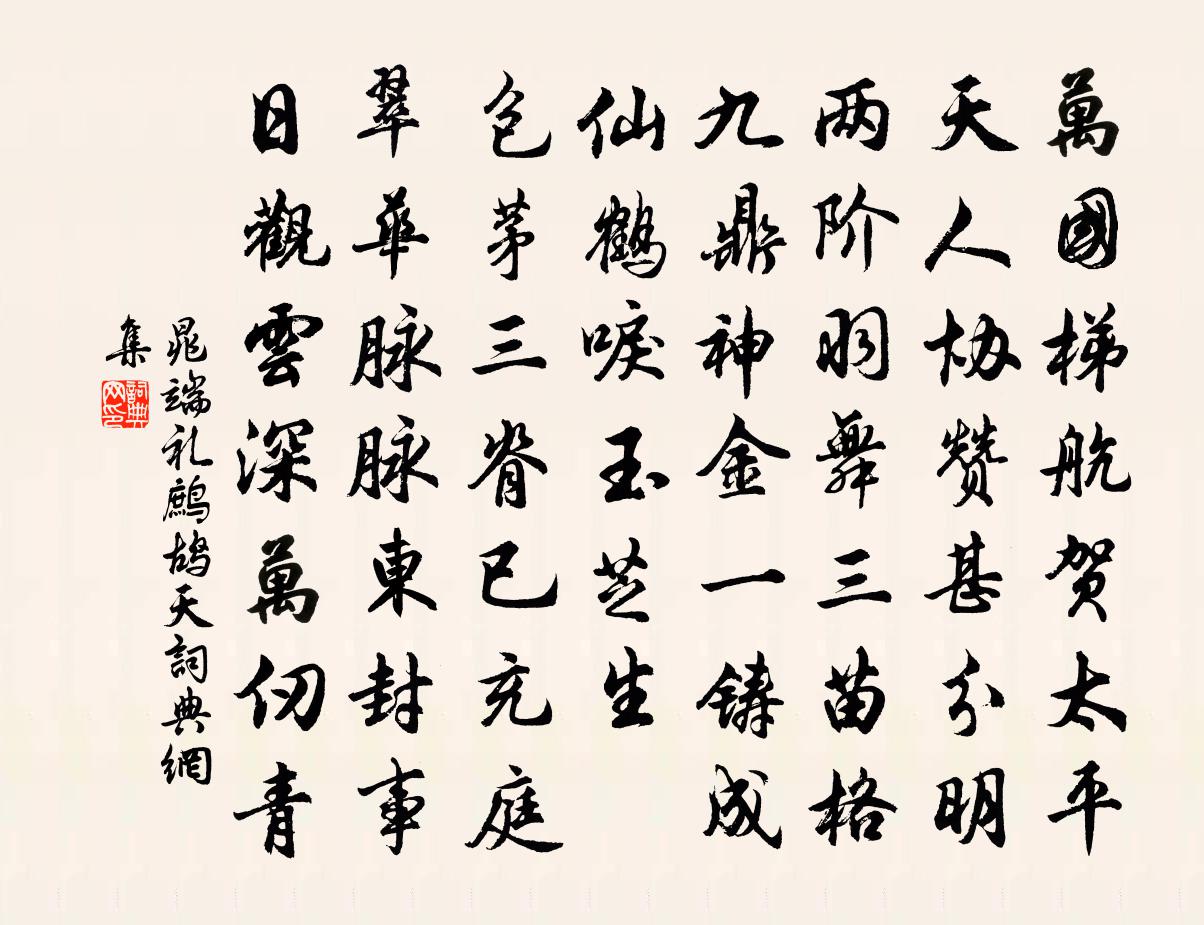 萬國梯航賀太平
天人协贊甚分明
两阶羽舞三苗格
九鼎神金一鑄成
仙鶴唳玉芝生
包茅三脊已充庭
翠華脉脉東封事
日觀雲深萬仞青
晁端礼鷓鴣天詞典網
集
詞典网印